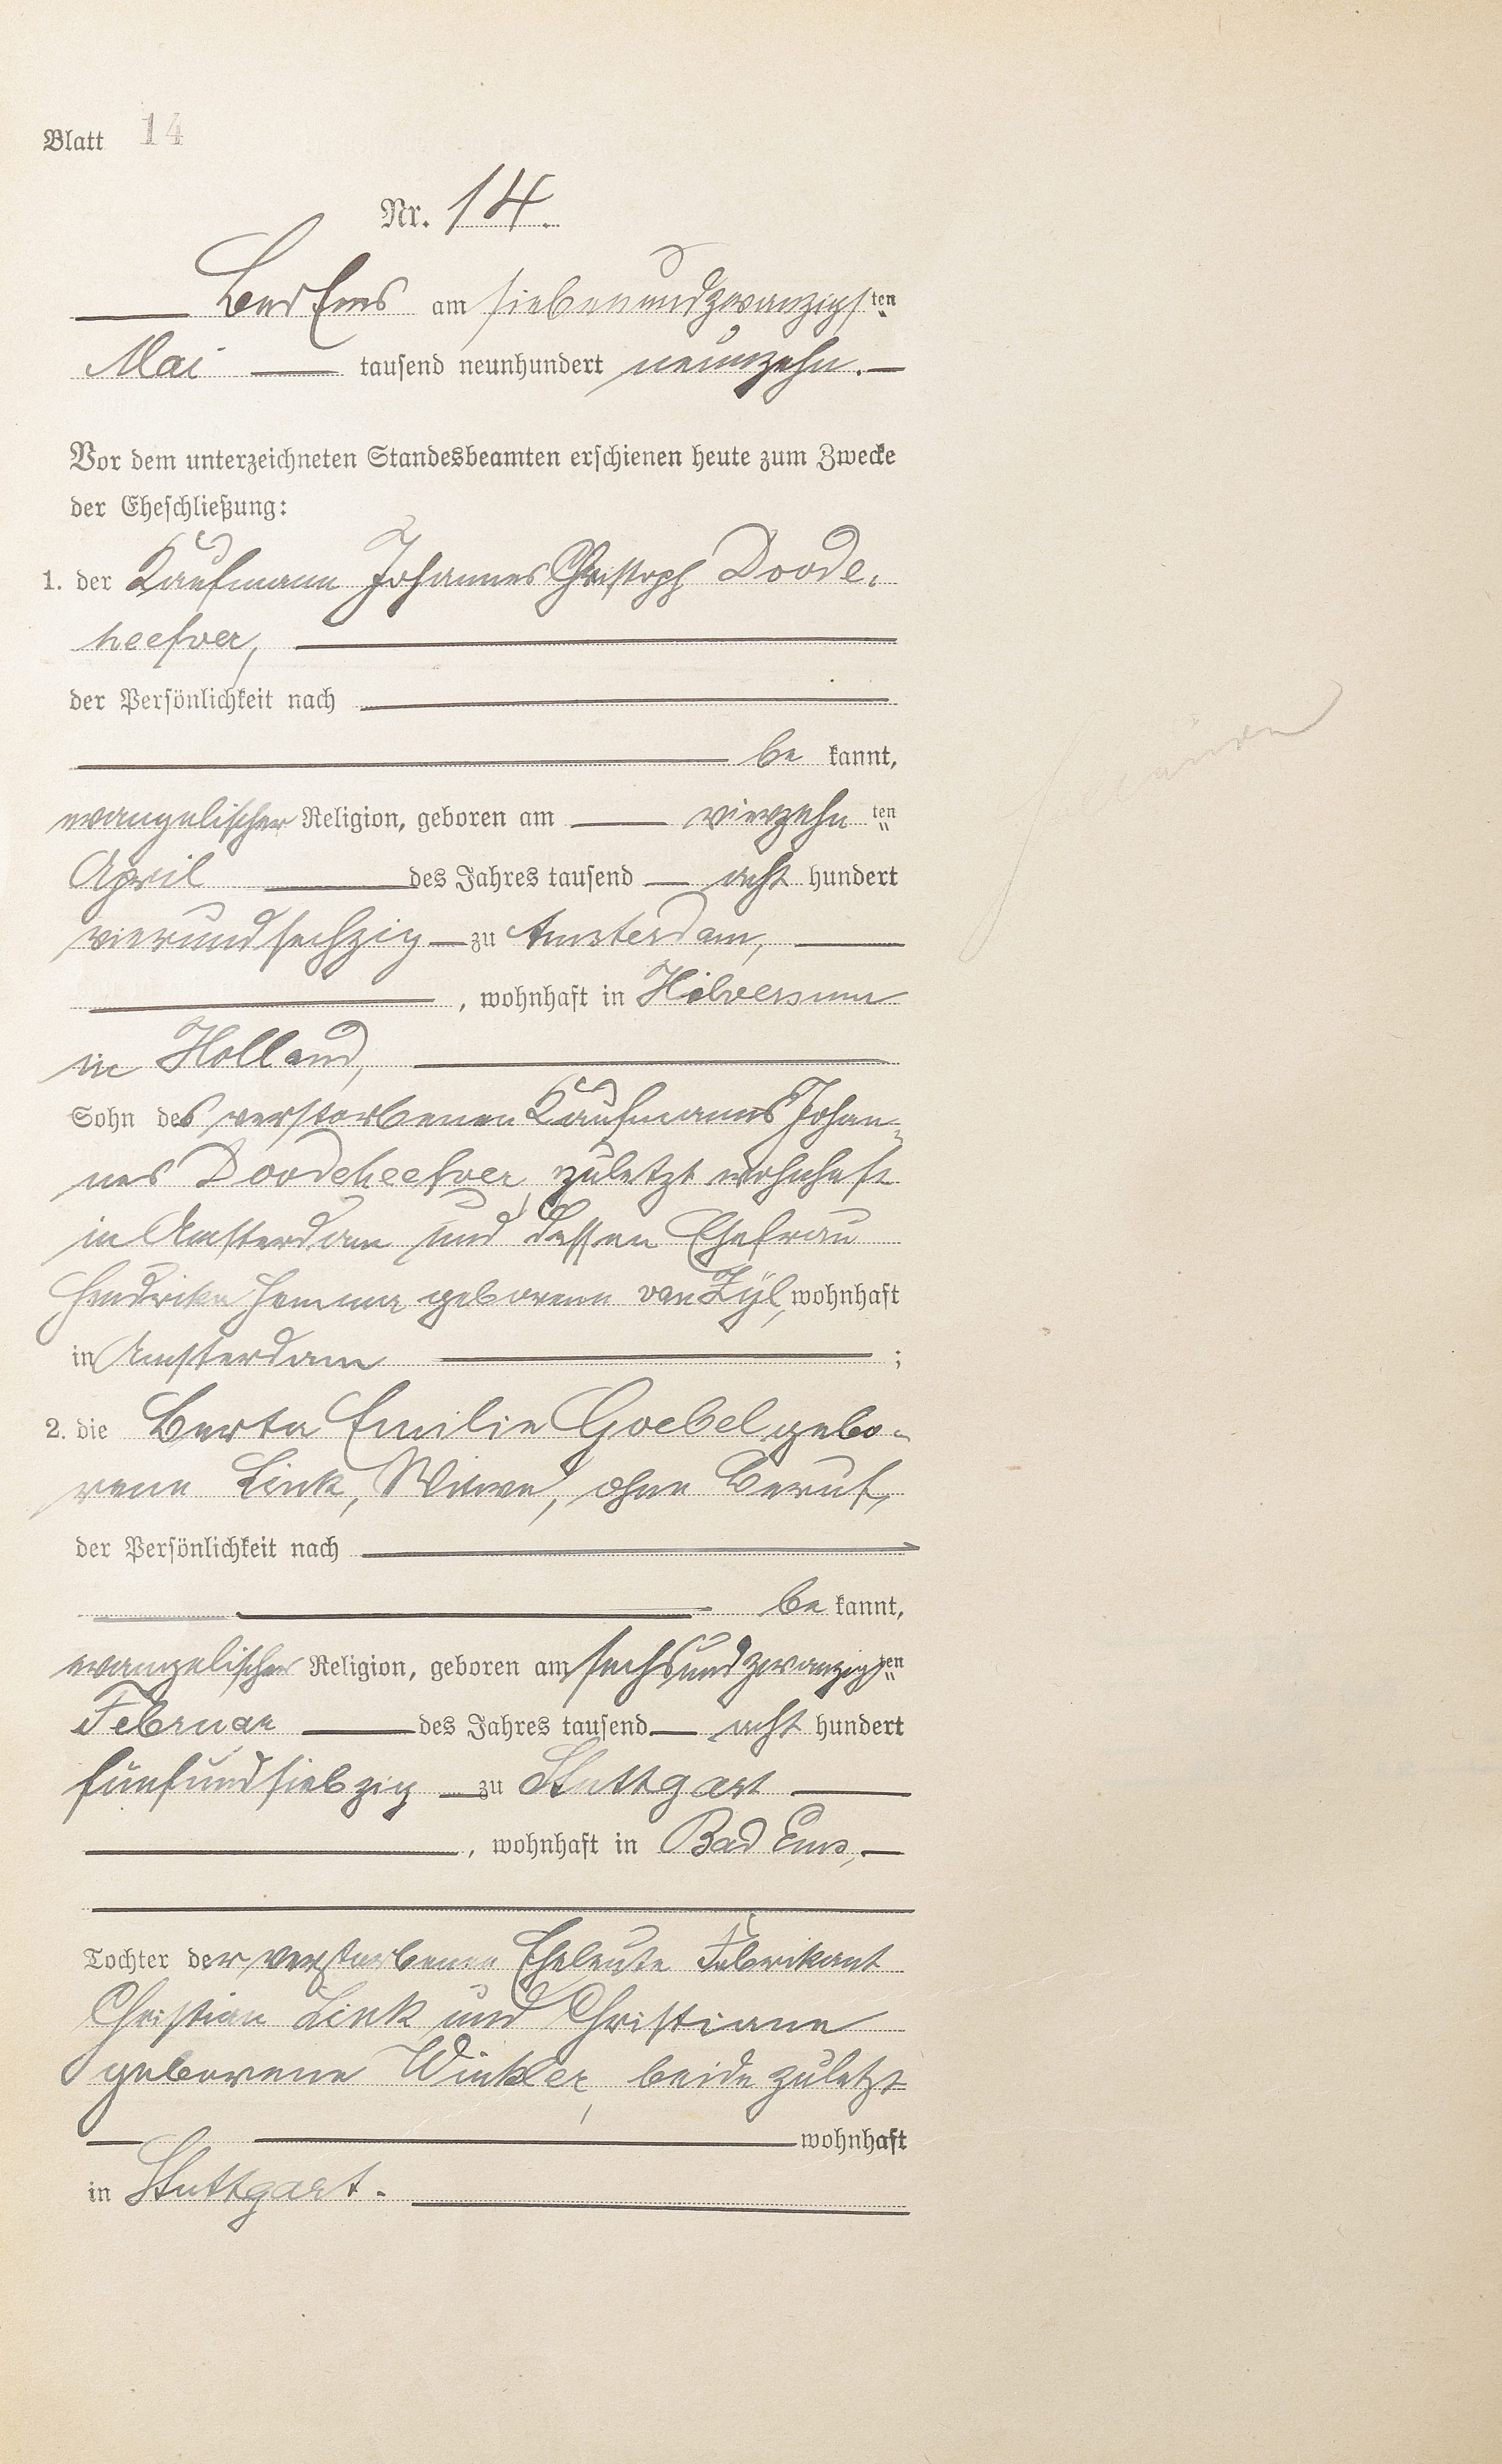 Blatt 14
Nr. 14.
Bad Ems am siebenundzwanzigsten
Mai tausend neunhundert neunzehn.
Vor dem unterzeichneten Standesbeamten erschienen heute zum Zwecke
der Eheschließung:
1. der Kaufmann Johannes Christoph Doode-
heefver,
der Persönlichkeit nach
be kannt,
evangelischer Religion, geboren am vierzehn ten
April des Jahres tausend acht hundert
vierundsechzig zu Amsterdam,
, wohnhaft in Hilversum
in Holland,
Sohn des verstorbenen Kaufmanns Johan-
nes Doodeheefver, zuletzt wohnhaft
in Amsterdam und dessen Ehefrau
Hendrika geborene van Zÿl, wohnhaft
in Amsterdam ;
2. die Berta Emilie Goebel gebo-
rene Link, Witwe, ohne Beruf,
der Persönlichkeit nach
be kannt,
evangelischer Religion, geboren am sechsundzwanzigsten
Februar des Jahres tausend acht hundert
fünfundsiebzig zu Stuttgart
, wohnhaft in Bad Ems,
Tochter der verstorbenen Eheleute Fabrikant
Christian Link und Christiane
geborene Winkler, beide zuletzt
wohnhaft
in Stuttgart.